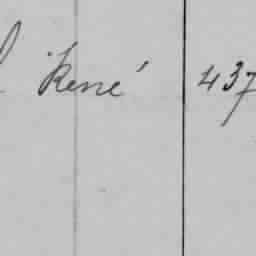 René 437